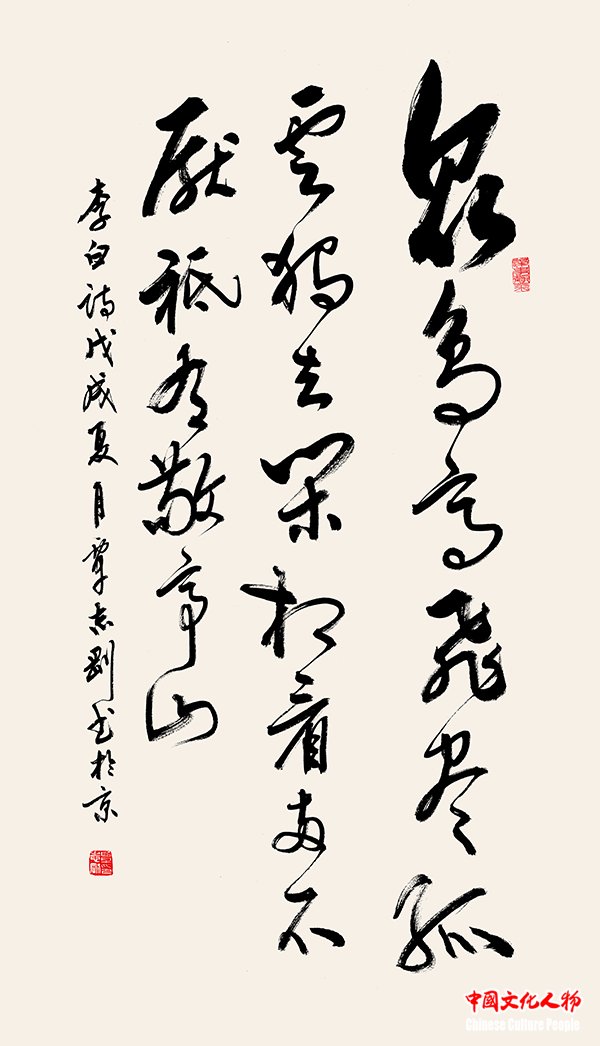 眾鳥高飛盡孤
雲獨去閑相看兩不
厭祗有敬亭山
李白詩戊戌夏月覃志剛書於京
中國文化人物
Chinese Culture People